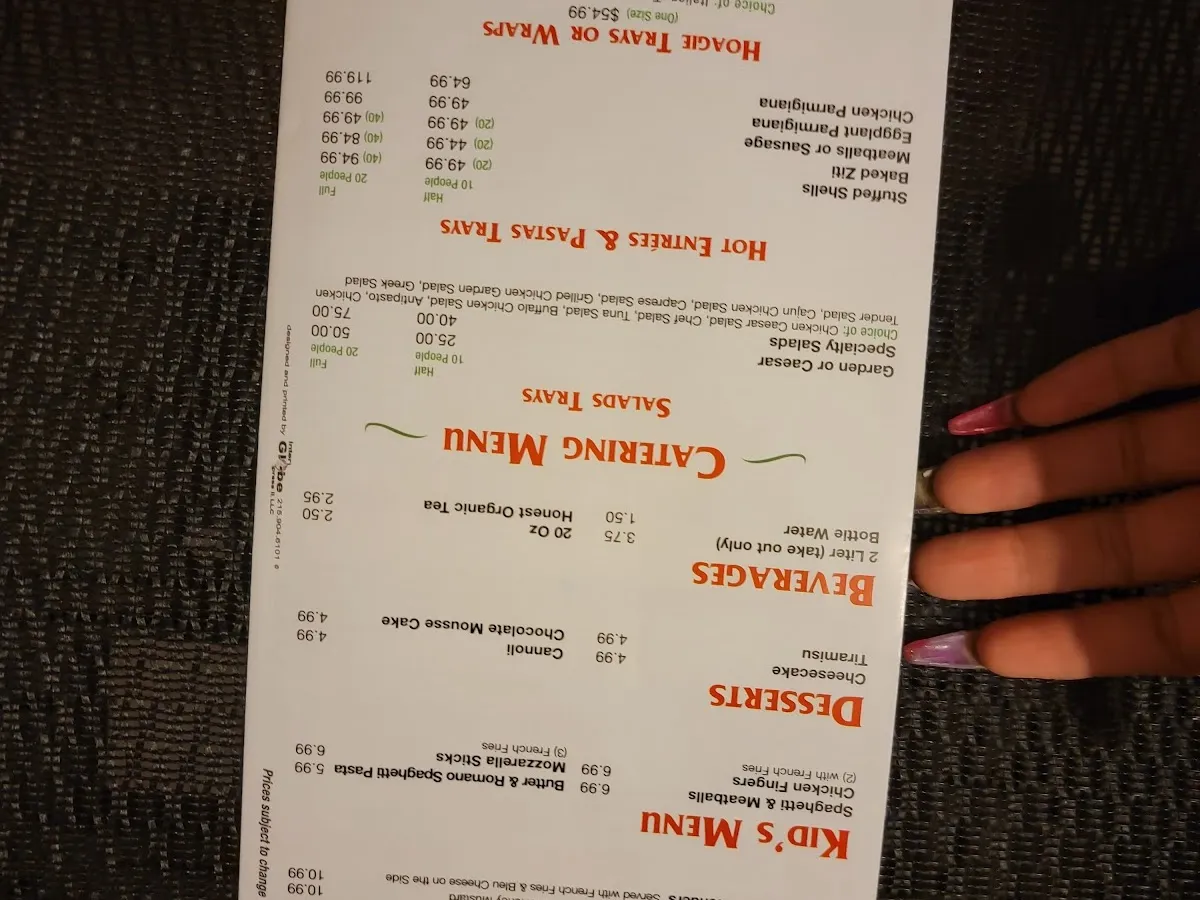 10.99
Served with French Fries & Bleu Cheese on the Side 10.99
KID'S MENU
Spaghetti & Meatballs 6.99 Butter & Romano Spaghetti Pasta 5.99
Chicken Fingers 6.99 Mozzarella Sticks 6.99
(2) with French Fries (3) French Fries
DESSERTS
Cheesecake 4.99 Cannoli 4.99
Tiramisu 4.99 Chocolate Mousse Cake 4.99
BEVERAGES
2 Liter (take out only) 3.75 20 Oz 2.50
Bottle Water 1.50 Honest Organic Tea 2.95
CATERING MENU
SALADS TRAYS
Half Full
10 People 20 People
Garden or Caesar 25.00 50.00
Specialty Salads 40.00 75.00
Choice of: Chicken Caesar Salad, Chef Salad, Tuna Salad, Buffalo Chicken Salad, Antipasto, Chicken
Tender Salad, Cajun Chicken Salad, Caprese Salad, Grilled Chicken Garden Salad, Greek Salad
HOT ENTRÉES & PASTAS TRAYS
Half Full
10 People 20 People
Stuffed Shells (20) 49.99 (40) 94.99
Baked Ziti (20) 44.99 (40) 84.99
Meatballs or Sausage (20) 49.99 (40) 49.99
Eggplant Parmigiana 49.99 99.99
Chicken Parmigiana 64.99 119.99
HOAGIE TRAYS OR WRAPS
(One Size) $54.99
Choice of: Italian
Prices subject to change
designed and printed by Inter Globe Press II, LLC 215.904.8101 ©